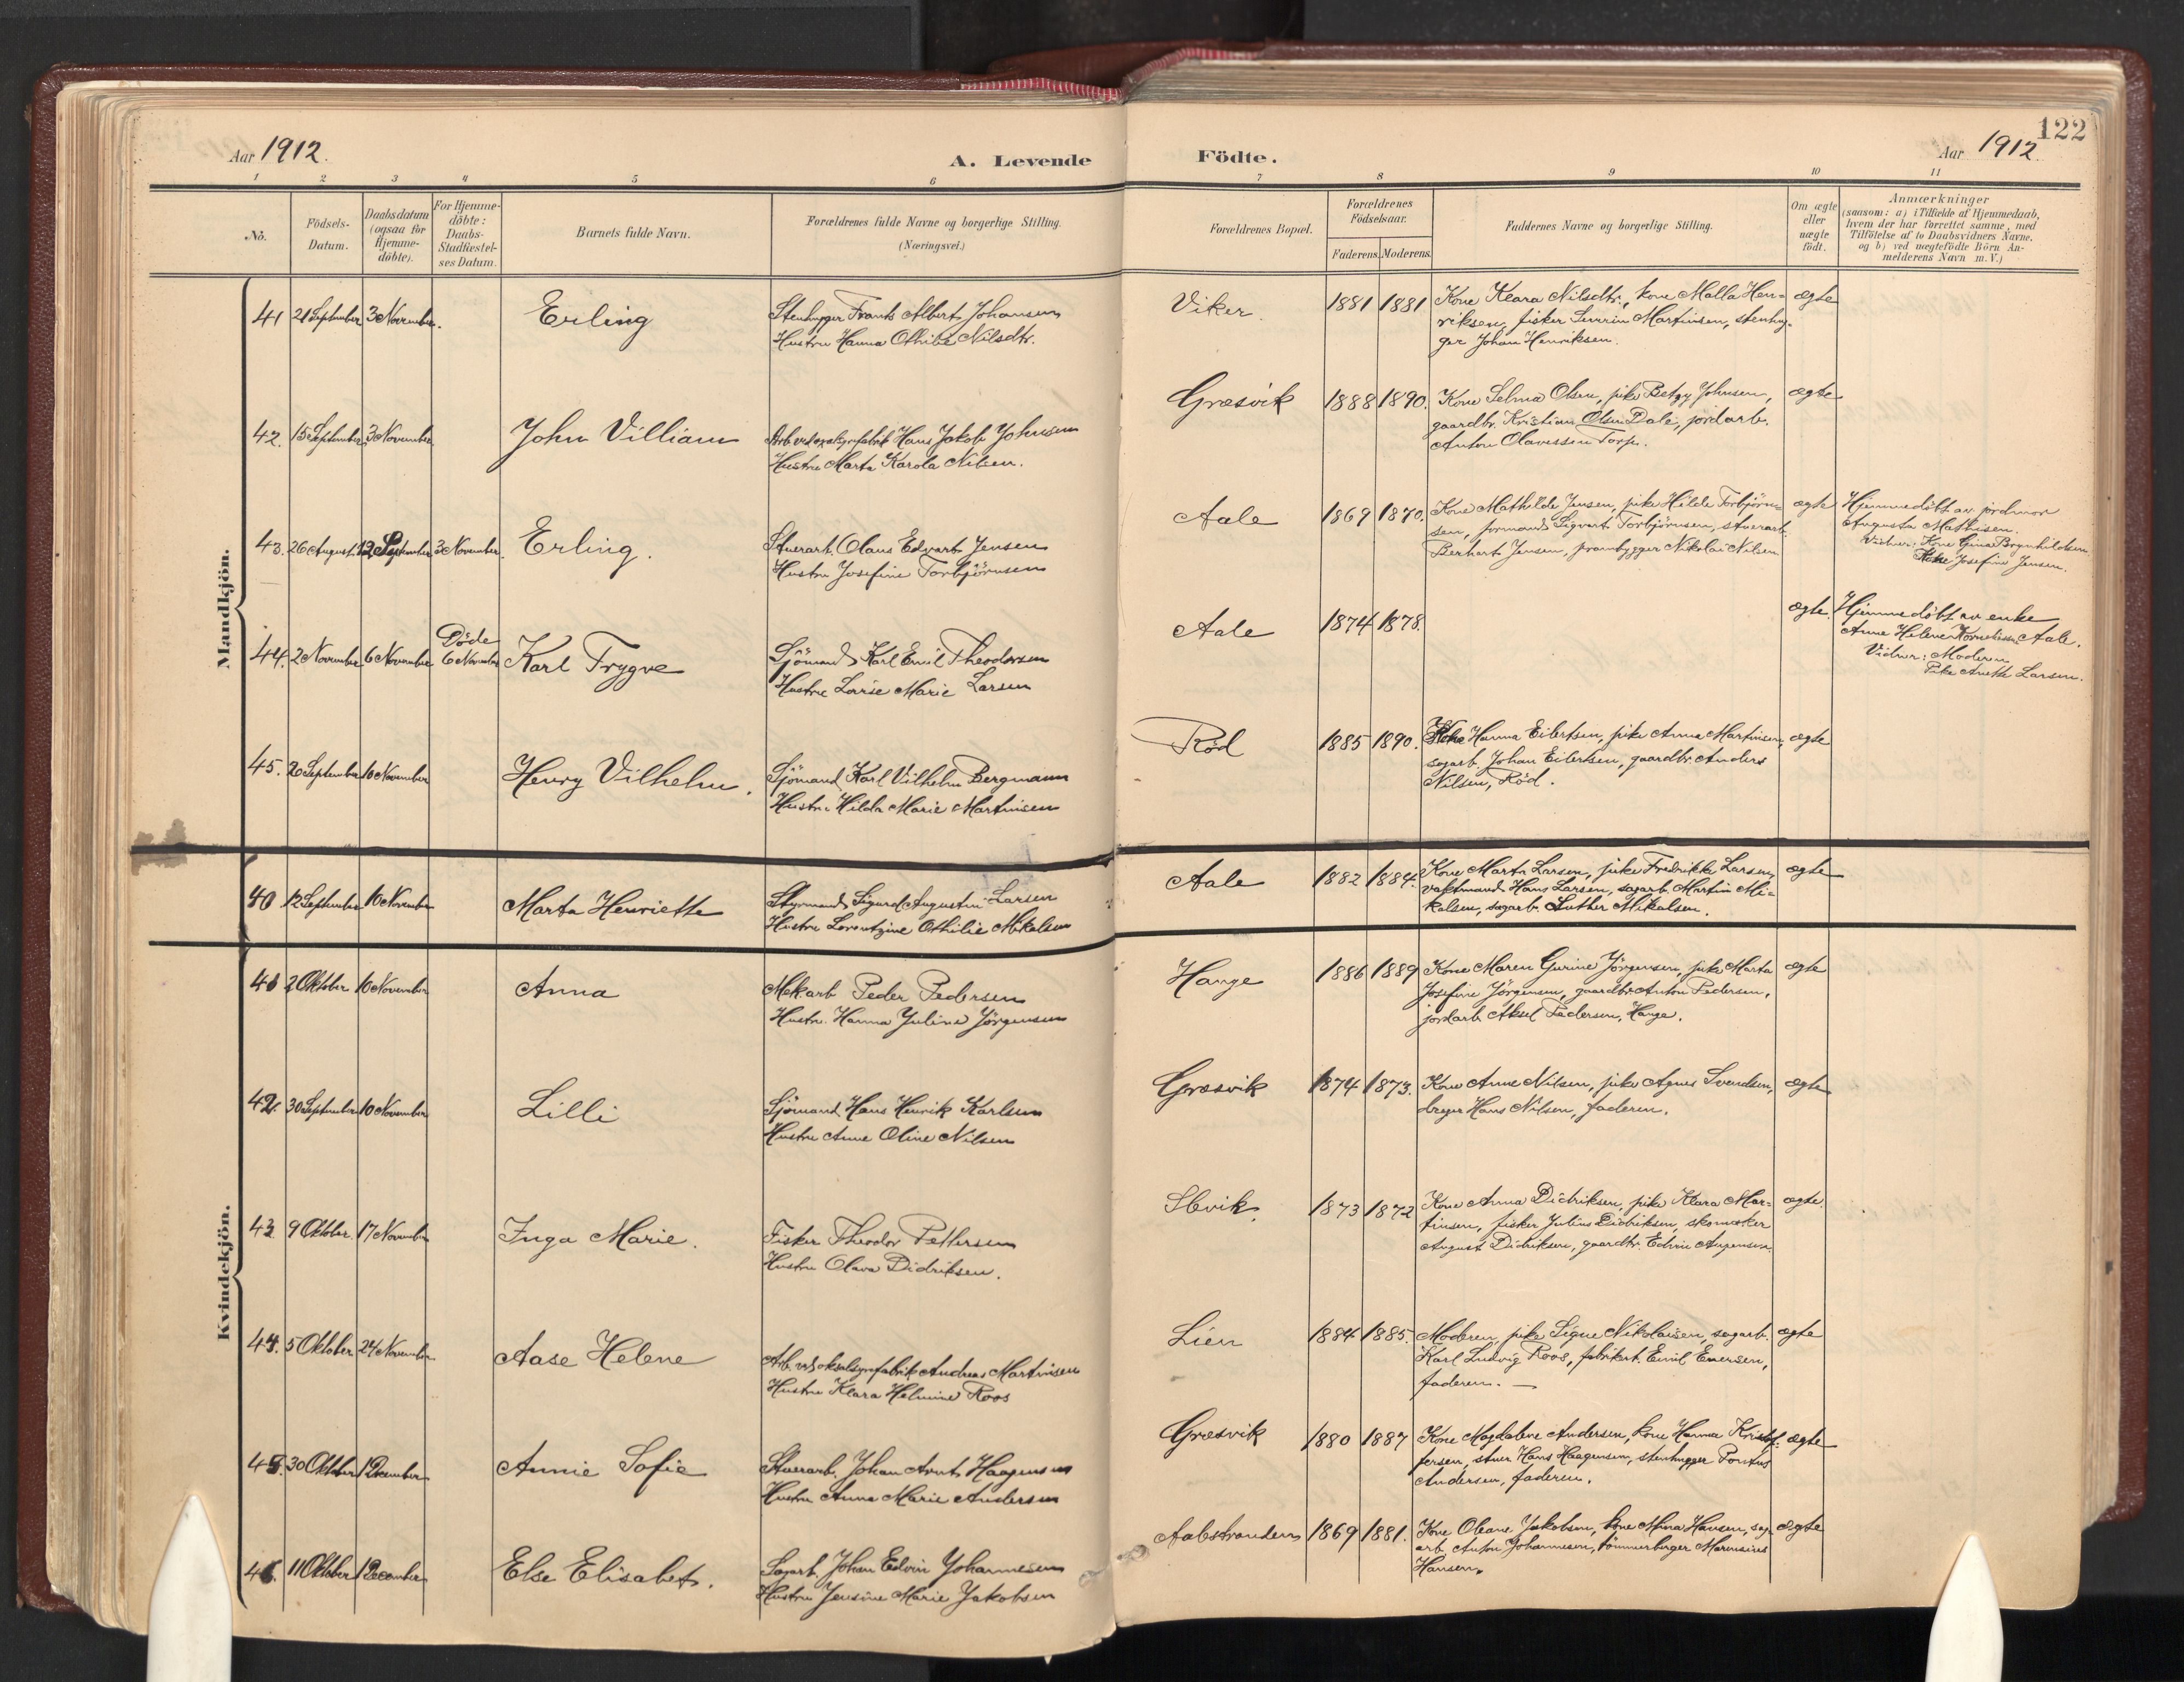 122
Aar 1912.
A. Levende
Födte.
Aar 1912.
1 2 3 4 5 6 7 8 9 10 11
No.
Födsels-Datum.
Daabsdatum (ogsaa for Hjemme-döbte).
For Hjemme-döbte: Daabs-Stadfæstel-ses Datum.
Barnets fulde Navn.
Forældrenes fulde Navne og borgerlige Stilling.
(Næringsvei.)
Forældrenes Bopæl.
Forældrenes Födselsaar.
Faderens. Moderens.
Faddernes Navne og borgerlige Stilling.
Om ægte eller uægte födt.
Anmærkninger
(saasom: a) i Tilfælde af Hjemmedaab,
hvem der har forrettet samme, med
Tilföielse af to Daabsvidners Navne.
og b) ved uægtefödte Börn An-
melderens Navn m.V.)
Mandkjön.
41 21 September 3 November. Erling
Stenhugger Frants Albert Johansen
Hustru Hanna Othilie Nilsdtr.
Viker. 1881 1881
Kone Klara Nilsdtr., kone Malla Hen-
riksen, fisker Severin Martinsen, stenhug-
ger Johan Henriksen.
ægte
42. 15 September 3 November John Villiam
Arb. ved Hans Jakob Johnsen
Hustru Marta Karola Nilsen.
Græsvik 1888 1890.
Kone Selma Olsen, pike Betzy Johnsen,
gaardbr. Kristian Olsen Dale, jordarb.
Anton Olavessen Torp.
ægte
43. 26 August. 12 September 3 November. Erling.
Stuerarb. Olaus Edvart Jensen
Hustru Josefine Torbjörnsen
Aale 1869 1870.
Kone Mathilde Jensen, pike Hilda Torbjörn-
sen, formand Sigvart Torbjörnsen, stuerarb.
Berhart Jensen, prambygger Nikolai Nilsen
ægte
Hjemmedöbt av jordmor
Augusta Mathisen.
Vidner: Kone Gina Brynhildsen.
Josefine Jensen.
44. 2 November 6 November Döde 6 November Karl Trygve
Sjömand Karl Emil Theodorsen
Hustru Lovise Marie Larsen
Aale 1874 1878.
ægte.
Hjemmedöbt av enke
Anne Helene Kornelius Aale.
Vidner: Moderen
Pike Anette Larsen.
45. 26 September 10 November Henry Vilhelm.
Sjömand Karl Vilhelm Bergmann
Hustru Hilda Marie Martinsen
Röd 1885 1890.
Kone Hanna Eilertsen, pike Anna Martinsen,
sagarb. Johan Eilertsen, gaardbr. Anders
Nilsen, Röd.
ægte
Kvindekjön.
40 12 September 10 November Marta Henriette
Styrmand Sigurd Augustin Larsen
Hustru Lorentzine Othilie Mikalsen
Aale 1882 1884.
Kone Marta Larsen, pike Fredrikke Larsen,
vaktmand Hans Larsen, sagarb. Martin Mi-
kalsen, sagarb. Luther Mikalsen.
ægte
41 2 Oktober 10 November Anna
Mek arb Peder Pedersen
Hustru Hanna Juline Jörgensen
Hauge 1886 1889
Kone Maren Gurine Jörgensen, pike Marta
Josefine Jörgensen, gaardbr. Anton Pedersen,
jordarb. Aksel Pedersen, Hauge.
ægte
42. 30 September 10 November Lilli
Sjömand Hans Henrik Karlsen
Hustru Anne Oline Nilsen
Græsvik 1874 1873.
Kone Anne Nilsen, pike Agnes Svendsen,
Hans Nilsen, faderen.
ægte
43 9 Oktober 17 November Inga Marie.
Fisker Theodor Pettersen
Hustru Olava Didriksen.
Slevik. 1873 1872
Kone Anna Didriksen, pike Klara Mar-
tinsen, fisker Julius Didriksen, skomaker
August Didriksen, gaardbr. Edvin
ægte.
44. 5 Oktober 24 November Aase Helene
Arb. ved Andreas Martinsen
Hustru Klara Helmine Roos
Lien 1884 1885.
Moderen, pike Signe Nikolaisen, sagarb.
Karl Ludvig Roos, fabrikarb. Emil Enersen,
faderen. —
ægte
45. 30 Oktober 1 December Annie Sofie
Stuerarb. Johan Arnt Haagensen
Hustru Anna Marie Andersen
Græsvik 1880 1887
Kone Magdalene Andersen, kone Hanna Kristof-
fersen, stuer Hans Haagensen, stenhugger Pontus
Andersen, faderen.
ægte
46. 11 Oktober 1 December Else Elisabet.
Sagarb. Johan Edvin Johannesen
Hustru Jensine Marie Jakobsen
Aalestranden 1869 1881.
Kone Oleane Jakobsen, kone Anna Hansen, sag-
arb. Anton Johannesen, tömmerbærger Marensius
Hansen.
ægte